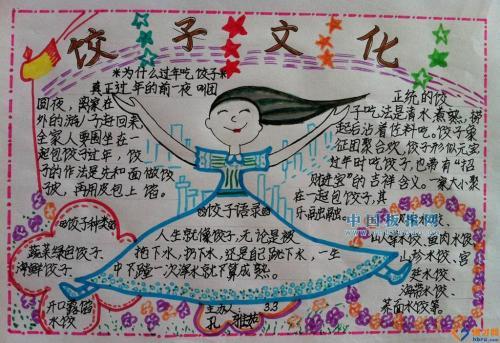 饺子文化
*为什么过年吃饺子*
真正过年的前一夜叫团
圆夜，离家在
外的游人子赶回来
全家人要围坐在一
起包饺子过年，饺
子的作法是先和面做饺
子皮，再用皮包上馅。
正统的饺
子吃法是清水煮熟，捞
起后沾着佐料吃。饺子象
征团聚合欢，饺子形似元宝
过年时吃饺子，也带有"招
财进宝"的吉祥含义。一家大小聚
在一起包饺子，其
乐融融
饺子种类
蔬菜绿色饺子
海鲜饺子
开口露馅
水饺
饺子语录
人生就像饺子，无论是被
拖下水，扔下水，还是自己跳下水，一生
中不蹚一次浑水就不算成熟。
主办人
3.3
孔
中国板报网
水饺
山珍水饺、鱼肉水饺
山珍水饺、宫
廷水饺
海带水饺、
茶面水饺等。